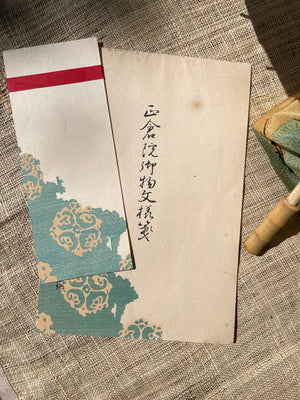 正倉院御物文様箋